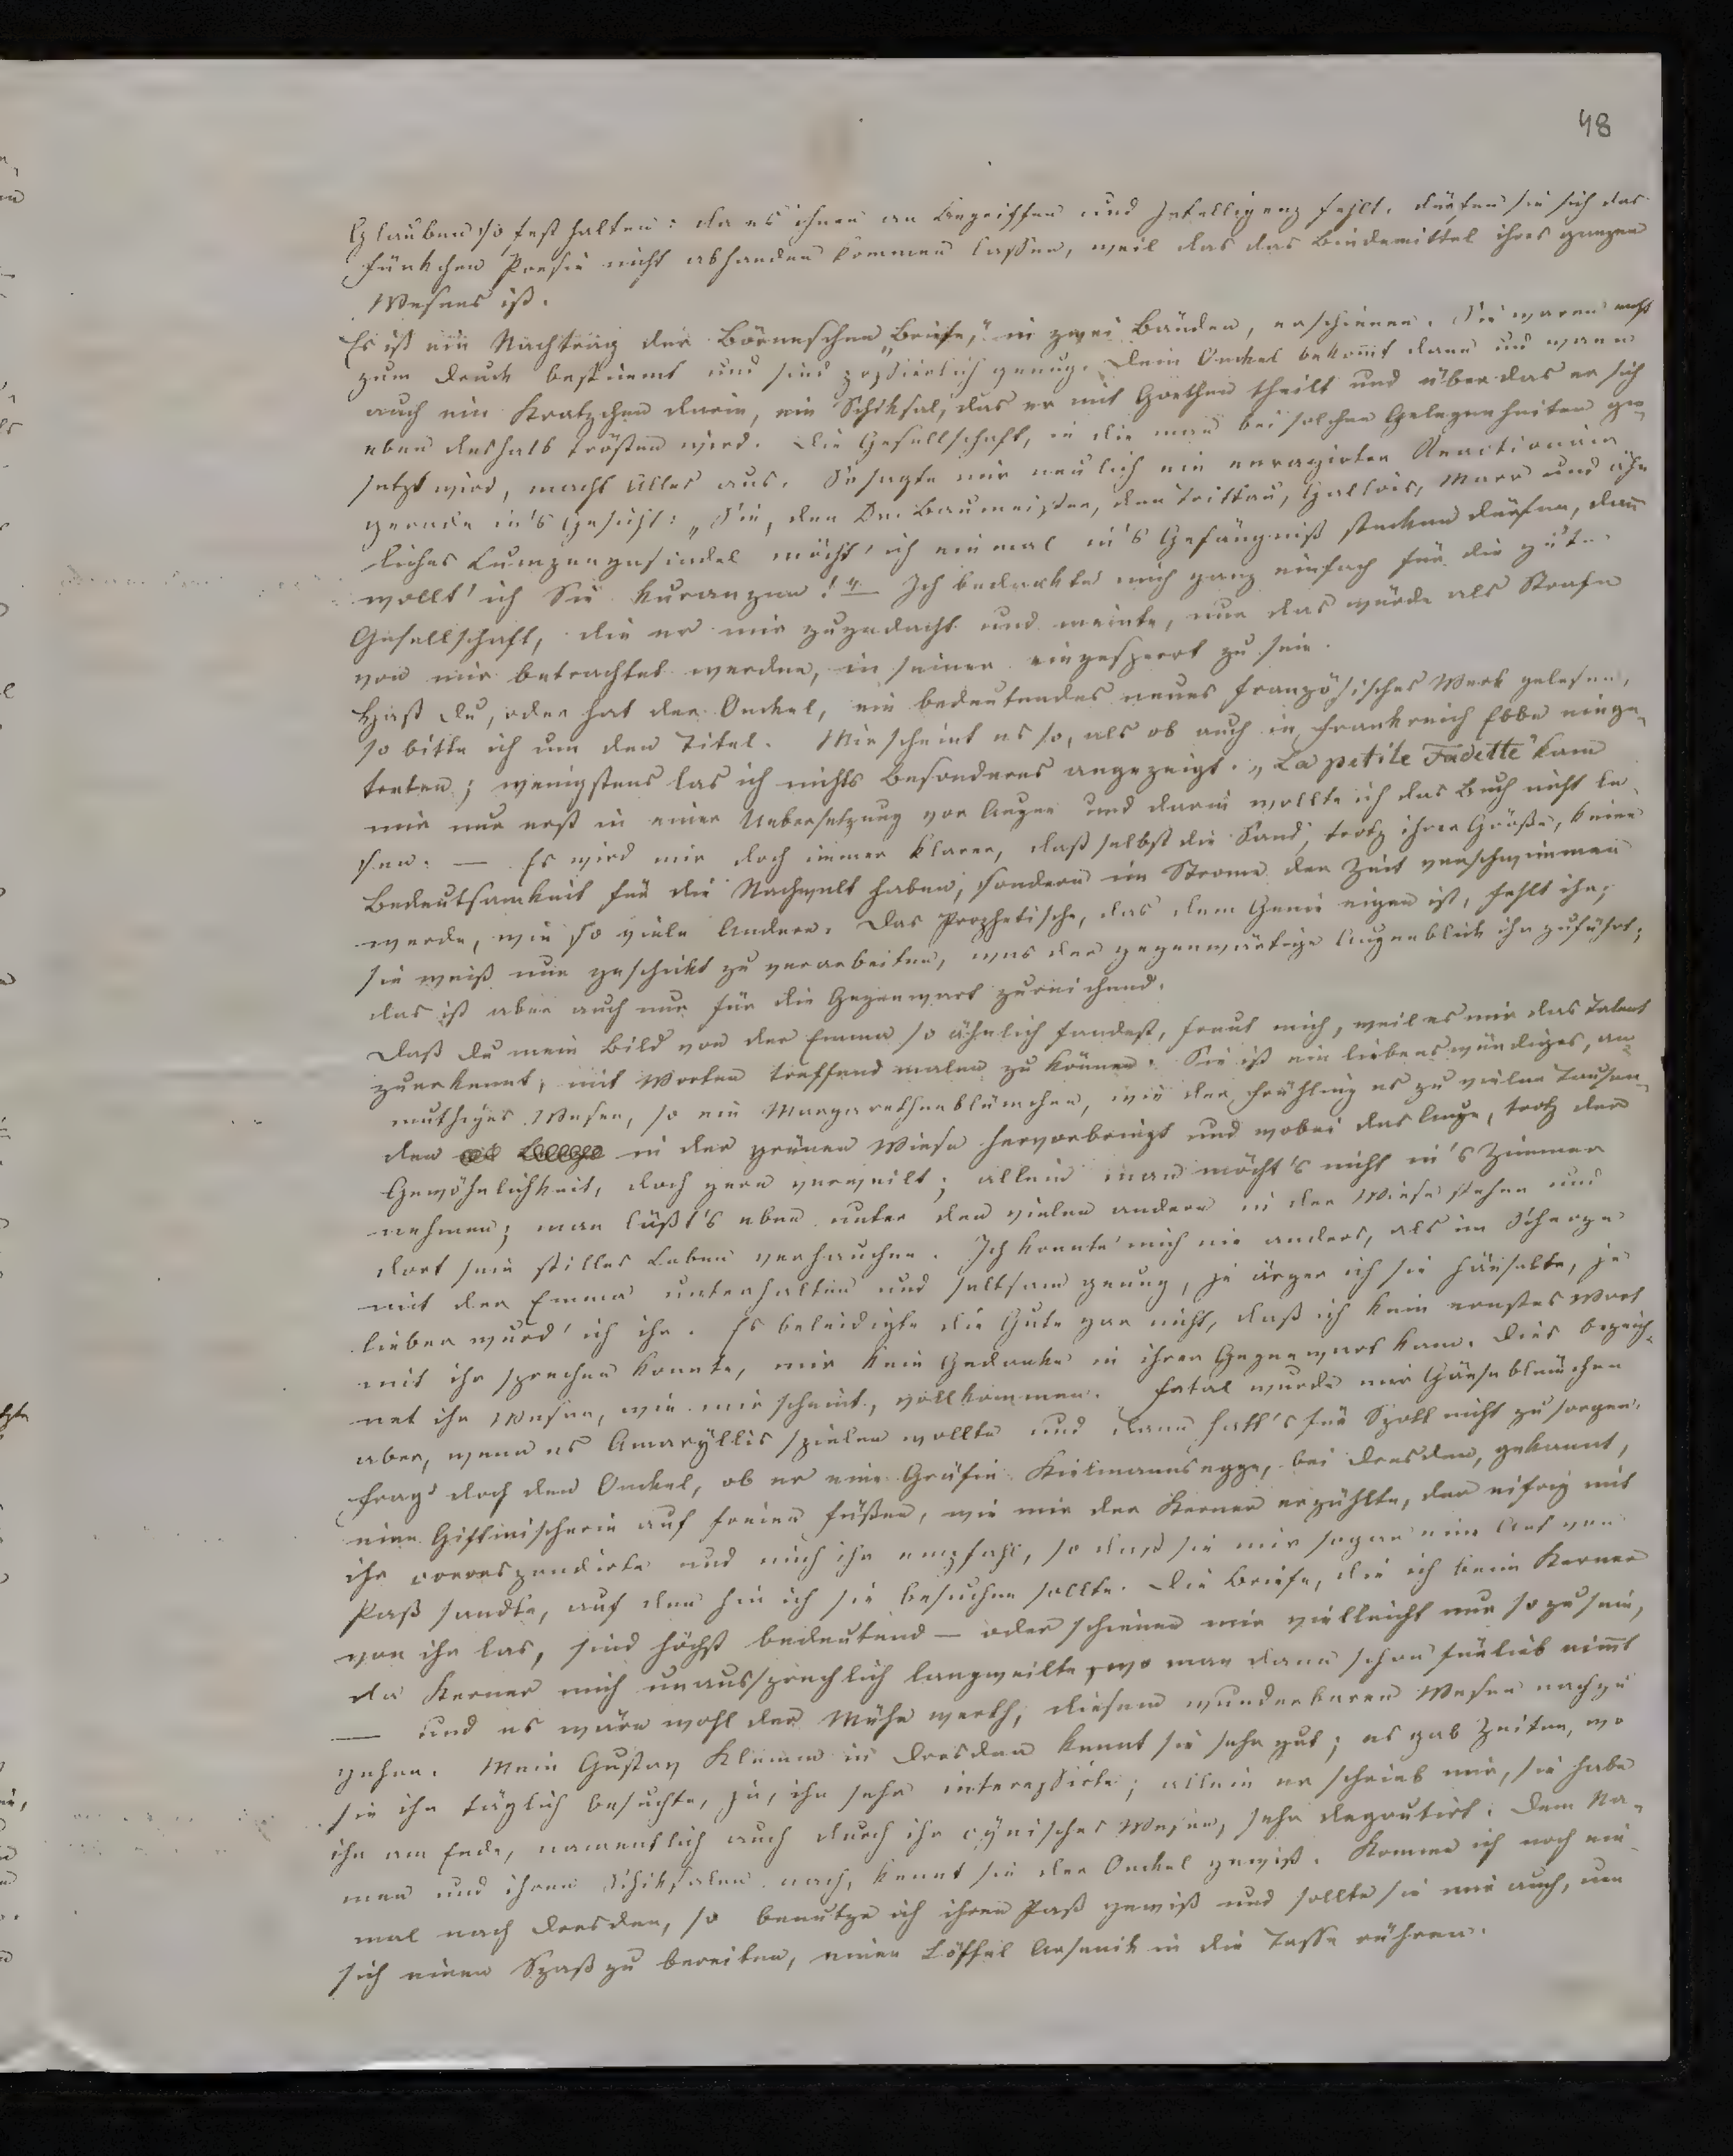 48
Glauben so fest halten: da es ihnen an Begriffen und Intelligenz fehlt, dürfen sie sich das
Fünkchen Poesie nicht abhanden kommen lassen, weil das das Bindemittel ihres ganzen
Wesens ist.
Es ist ein Nachtrag der Börneschen „Briefe,“ in zwei Bänden, erschienen. Sie waren nicht
zum Druck bestimmt und sind possierlich genug. Dein Onckel bekommt dann und wann
auch ein Kratzchen darin, ein Schiksal, das er mit Goethen theilt und über das er sich
eben deshalb trösten wird. Die Gesellschaft, in die man bei solchen Gelegenheiten ge-
setzt wird, macht Alles aus. So sagte mir neulich ein enragirter Reactionair
gerade in's Gesicht: „Sie, den Dr. Baumeister, den Trittau, Gallois, Marr und ähn
liches Lumpengesindel möcht' ich einmal in's Gefängniß stecken dürfen, dann
wollt' ich Sie kuranzen!“ — Ich bedankte mich ganz einfach für die gute
Gesellschaft, die er mir zugedacht und meinte, nur das würde als Strafe
von mir betrachtet werden, in seiner eingesperrt zu sein.
Hast Du, oder hat der Onckel, ein bedeutendes neues französisches Werk gelesen,
so bitte ich um den Titel. Mir scheint es so, als ob auch in Frankreich Ebbe einge-
treten; wenigstens las ich nichts Besonderes angezeigt. „La petite Fadette“ kam
mir nur erst in einer Uebersetzung vor Augen und darin wollte ich das Buch nicht le-
sen. — Es wird mir doch immer klarer, daß selbst die Sand, trotz ihrer Größe, keine
Bedeutsamkeit für die Nachwelt haben, sondern im Strome der Zeit verschwimmen
werde, wie so viele Andere. Das Prophetische, das dem Genie eigen ist, fehlt ihr;
sie weiß nur geschikt zu verarbeiten, was der gegenwärtige Augenblick ihr zuführt;
das ist aber auch nur für die Gegenwart zureichend.
Daß Du mein Bild von der Emma so ähnlich fandest, freut mich, weil es mir das Talent
zuerkennt, mit Worten treffend malen zu können. Sie ist ein liebenswürdiges, an-
muthiges Wesen, so ein Margarethenblümchen, wie der Frühling es zu vielen Tausen-
den in der grünen Wiese hervorbringt und wobei das Auge, trotz der
Gewöhnlichkeit, doch gern verweilt; allein man möcht's nicht in's Zimmer
nehmen; man läßt's eben unter den vielen andern in der Wiese stehen und
dort sein stilles Leben verhauchen. Ich konnte mich nie anders, als im Scherze
mit der Emma unterhalten und seltsam genug, je ärger ich sie hänselte, je
lieber wurd' ich ihr. Es beleidigte die Gute gar nicht, daß ich kein ernstes Wort
mit ihr sprechen konnte, mir kein Gedanke in ihrer Gegenwart kam. Dies bezeich-
net ihr Wesen, wie mir scheint, vollkommen. Fatal wurde mir Gänseblümchen
aber, wenn es Amaryllis spielen wollte und dann hatt's für Spott nicht zu sorgen.
Frage doch den Onckel, ob er eine Gräfin Kielmannsegge, bei Dresden, gekannt,
eine Giftmischerin auf freien Füßen, wie mir der Kerner erzählte, der eifrig mit
ihr correspondirte und mich ihr empfahl, so daß sie mir sogar eine Art von
Paß sandte, auf den hin ich sie besuchen sollte. Die Briefe, die ich beim Kerner
von ihr las, sind höchst bedeutend — oder schienen mir vielleicht nur so zu sein,
da Kerner mich unaussprechlich langweilte, wo man dann schon fürlieb nimmt
— und es wäre wohl der Mühe werth, diesem wunderbaren Wesen nachzu
gehen. Mein Gustav Klemm in Dresden kennt sie sehr gut; es gab Zeiten, wo
sie ihn täglich besuchte, ja, ihn sehr interessirte; allein er schrieb mir, sie habe
ihn am Ende, namentlich auch durch ihr cynisches Wesen, sehr degoutirt. Dem Na-
men und ihren Schiksalen nach, kennt sie der Onckel gewiß. Komme ich noch ein
mal nach Dresden, so benutze ich ihren Paß gewiß und sollte sie mir auch, um
sich einen Spaß zu bereiten, einen Löffel Arsenik in die Tasse rühren.